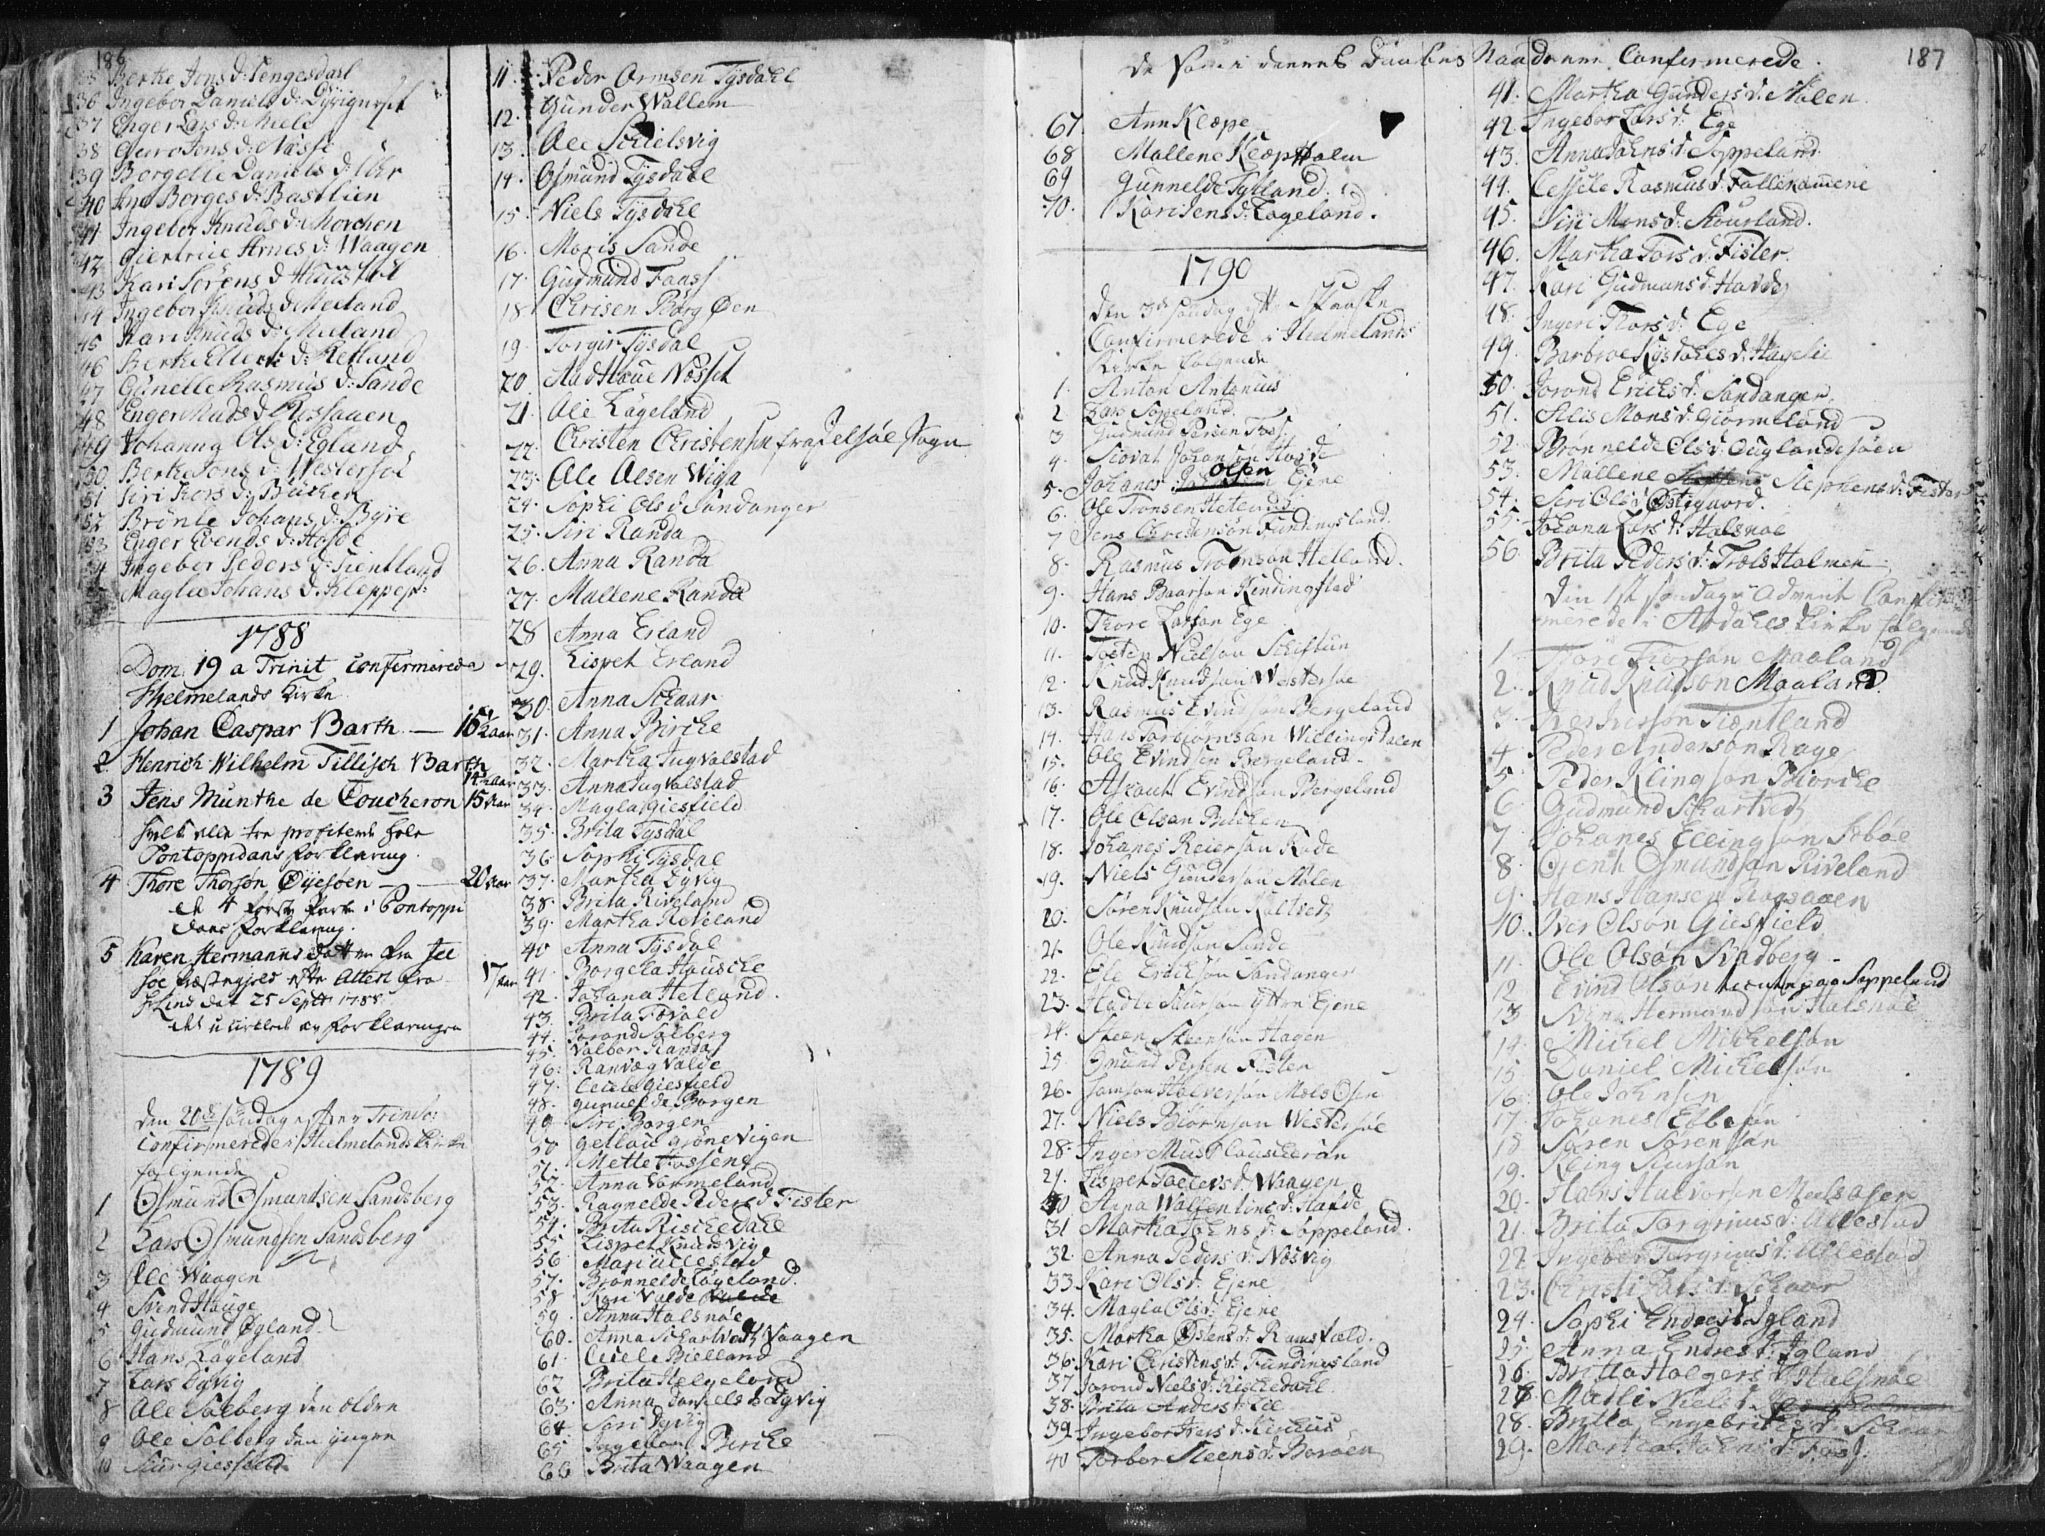 186
Berthe Jons d: Tengesdahl
36 Ingebor Daniels d:
37 Enger Lars d:
38 Guro Jens d: Næsse
39 Borgelle Daniels d:
40 Ane Borges d: Bastlien
41 Ingebor Knuds d: Morchen
42 Giertrue Arnes d: Waagen
43 Kari Sørens d:
44 Ingebor Knuds d: Meeland
45 Kari Knuds d: Meeland
46 Berthe d: Hetland
47 Gunelle Rasmus d: Sande
48 Enger Mads d:
49 Johanna Ols d: Egland
50 Berthe Jons d: Westersøe
51 Siri Thors d: Bücken
52 Brønle Johans d: Byre
53 Enger Evends d: Hofde
54 Ingebor Peders d: Tientland
Magla Johans d: Kleppe
1788
Dom. 19 a Trinit confirmerede
Hjelmelands Kirke
1 Johan Caspar Barth — 16½ aar
2 Henrich Wilhelm Tillisch Barth
14½ aar
3 Jens Munthe de Coucheron 15 aar
alle tre hele
Pontoppidans forklaring.
4 Thore Thorsøn Øyesøen — 20 aar
de 4 første Parte i Pontoppi
dans forklaring.
5 Karen Hermannsdatter fra Jel
søe Præstegield efter Attest fra
25 Septr 1788 17 aar
af forklaringen
1789
den 20de søndag efter Trinit:
Confirmerede i Hielmelands Kirke
følgende
1 Osmund Osmundsen Sandsberg
2 Lars Osmundsen Sandsberg
3 Ole Waagen
4 Svend Hauge
5 Gudmund Øgland
6 Hans Lægeland
7 Lars Dyvig
8 Ole Solberg den Eldre
9 Ole Solberg den yngre
10 Siur Giesfield
11. Peder Ormsen Tysdahl
12. Gunder Wallem
13. Ole Schielsvig
14. Osmund Tysdahl
15. Niels Tysdahl
16. Moris Sande
17. Gudmund Foss
18. Chrisen Borg Øen
19. Torgir Tysdal
20 Aad Haue Næsset
21. Ole Lægeland
22. Christen Christensen fra Jelsøe Sogn
23. Ole Olsen Wiga
24. Sophi Ols d Sandanger
25. Siri Randa
26. Anna Randa
27. Mallene Randa
28 Anna Erland
29. Lispet Erland
30. Anna Schaar
31. Anna Birche
32. Martha Jugvalstad
33. Anna Jugvalstad
34. Magla Giesfield
35. Brita Tysdal
36. Sophi Tysdal
37. Martha Dyvig
38. Brita Riveland
39. Martha Reveland
40 Anna Tysdal
41. Borgela Hauscke
42. Johana Hetland.
43. Brita
44. Jorand Solberg
45. Valbor Randa
46. Ranvæg Valde
47. Cecele Giesfield
48. Gunnelde Borgen
49. Siri Borgen
50 Gellaü Grønevigen
51. Mette Fossene
52. Anna
53. Ragnelde Peders d Fister
54. Brita Rischedahl
55 Lispet Knuds Vig
56 Mari Ullestad
57. Brønnelde Lægeland.
58 Kari Valde
59. Anna Halsnøe
60. Anna Waagen
61. Cicele Bielland
62 Brita Helgeland
63. Anna Daniels d Dyvig
64. Siri Dyvig
65 Ingebor Birche
66 Brita Waagen
187
de Som i deres Daabes Naade ere Confirmerede.
67. Ann Klæpe
68 Mallene Klæpholm
69 Gunnelde Tytland.
70. Kari Jens d: Lægeland.
1790
den 3de søndag efter Paaske
Confirmerede i Hielmelands
Kirke følgende
1. Anton Antonius
2 Lars Sopeland.
3 Gudmund Persen Foss
4. Siovat Johanson Hofde
5. Johanes Olsen Eiene
6. Ole Tronsen Heteland
7 Jens Christensøn Fundingsland.
8. Rasmus Tronson Helland.
9. Hans Baarson Kindingstad
10. Thore Larson Ege
11. Tosten Nielson Schiftun
12. Knud Knudson Westersøe
13. Rasmus Evindson Bergeland
14. Hans Torbiornson Willingsdalen
15. Ole Evindsen Bergeland.
16. Aslach Evindson Bergeland
17. Ole Olsan Bücken
18. Johanes Reierson Rode
19. Niels Gunderson Mølen
20. Søren Knudson Kaltved
21. Ole Knudson Sande
22. Ele Erickson Sandanger
23. Hadle Siurson Ytre Eiene
24. Steen Steenson Hagen
25. Omund Persen Fister
26. Samson Halversøn Mæls Osen
27. Niels Biørnson Westersøe
28. Inger
29. Lispet Tollevs d: Waagen
30 Anna Wallentins d: Hande
31 Martha Johns d: Soppeland.
32 Anna Peders d: Nøsvig
33 Kari Ols d: Eiene
34. Magla Ols d: Eiene
35. Martha Østens d: Ramsfield.
36. Kari Christens d: Fundingsland
37 Jorond Niels d: Rischedahl
38. Brita Anders d: Lee
39. Ingebor Ivers d:
40 Torbor Steens d: Borøen
41. Martha Gunders d: Mølen.
42. Ingebor Lars d: Ege
43. Anna Johns d: Soppeland
44. Cessele Rasmus d: Fallekamene
45. Siri Mons d: Skourland.
46. Martha Tors d: Fister.
47. Kari Gudmans d: Havde
48. Ingeri Thors d: Ege
49. Barbroe d: Hagelie
50. Jorond Erichs d: Sandanger.
51. Silis Mons d: Giørmeland
52 Brønnelde Ols d:
53. Mallene Stephens d: Fister
54. Siri Ols d: Østegaard.
55. Johana Lars d: Halsnøe
56. Brita Peders d: Træls Holmen
den 1ste søndag i Advent Confir
merede i Ardahls Kirke følgende
1 Tore Torson Maaland
2. Knud Knudson Maaland.
3 Iver Iverson Tientland
4 Peder Anderson Rage
5 Peder Klingson Biørche
6 Gudmund Skartved
7 Johanes Ellingson
8. Giert Osmundson Riveland
9. Hans Hansen
10. Iver Olsøn Giesfield
11. Ole Olsøn Svadberg
12 Evind Olson tienende paa Soppeland
13 Hermandsøn Halsnøe
14 Michel Michelson
15. Daniel Michelsøn
16. Ole Johnsen
17. Johanes Ebbeson
18 Søren Sørenson
19. Kling Siurson
20. Hans Halvorsen Meels Osen
21. Brita Torgrims d: Ullestad
22. Ingebor Torgrims d: Ullestad
23. Christi Lars d: Schaar
24. Sophi Endres d: Igland
25 Anna Endres d: Igland
26. Britta Holgers d: Halsnøe
27 Malli Niels d:
28. Britta Engebrets d: Schaar
29. Martha Johns d: Foss.